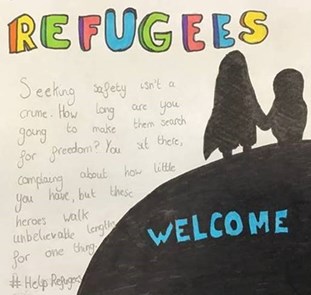 REFUGEES
Seeking safety isn't a
crime. How long are you
going to make them search
for freedom? You sit there,
complaing about how little
you have, but these
heroes walk
unbelievable lengths
for one thing.
WELCOME
# Help Refugees